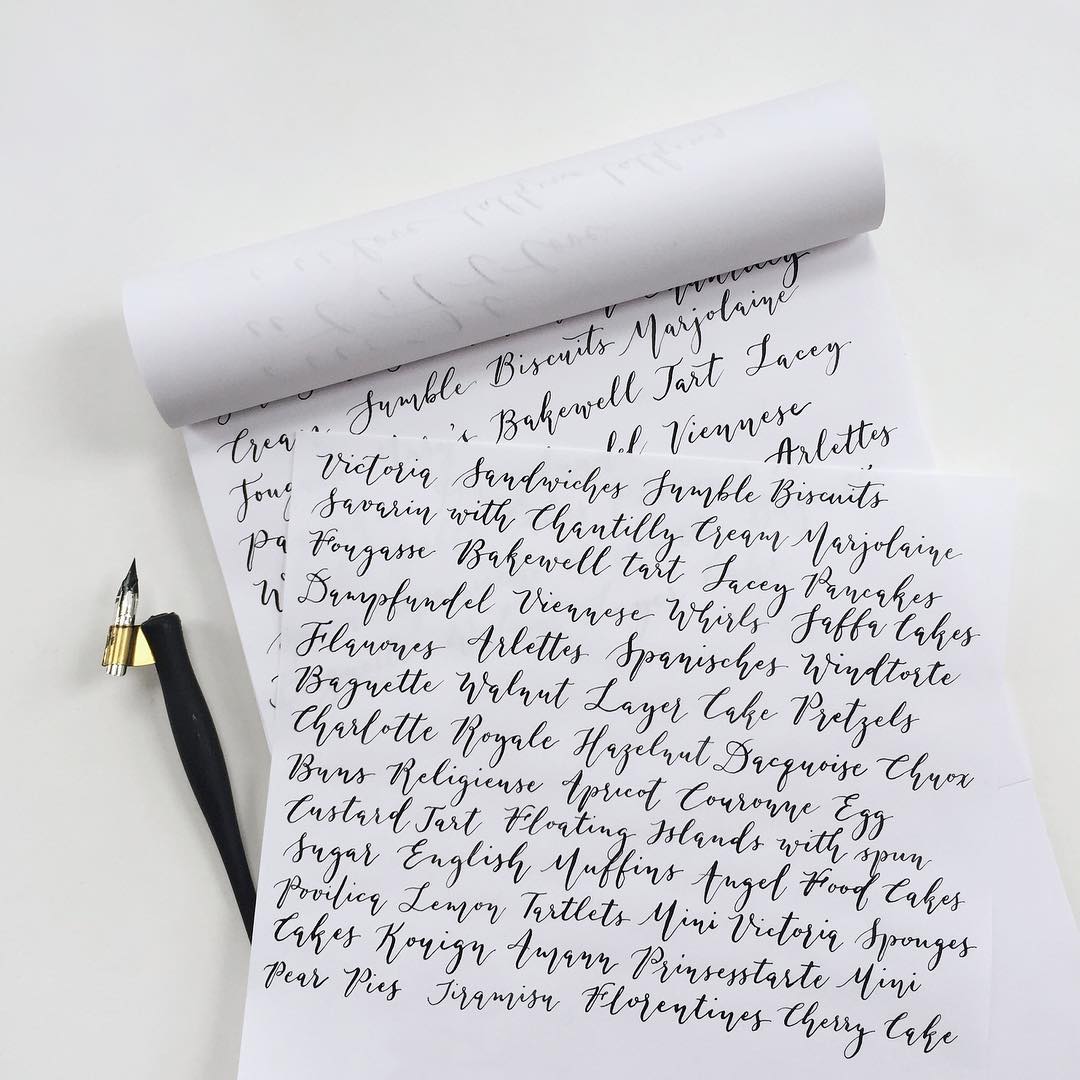 Biscuits Marjolaine
Jumble
Cream Bakewell Tart Lacey
Viennese
Arlettes
Victoria Sandwiches Jumble Biscuits
Savarin with Chantilly Cream Marjolaine
Fougasse Bakewell tart Lacey Pancakes
Dampfundel Viennese Whirls Jaffa Cakes
Flauones Arlettes Spanisches Windtorte
Baguette Walnut Layer Cake Pretzels
Charlotte Royale Hazelnut Dacquoise Chuox
Buns Religieuse Apricot Couronne Egg
Custard Tart Floating Islands with spun
Sugar English Muffins Angel Food Cakes
Povilica Lemon Tartlets Mini Victoria Sponges
Cakes Kouign Amann Prinsesstarte Mini
Pear Pies Tiramisu Florentines Cherry Cake